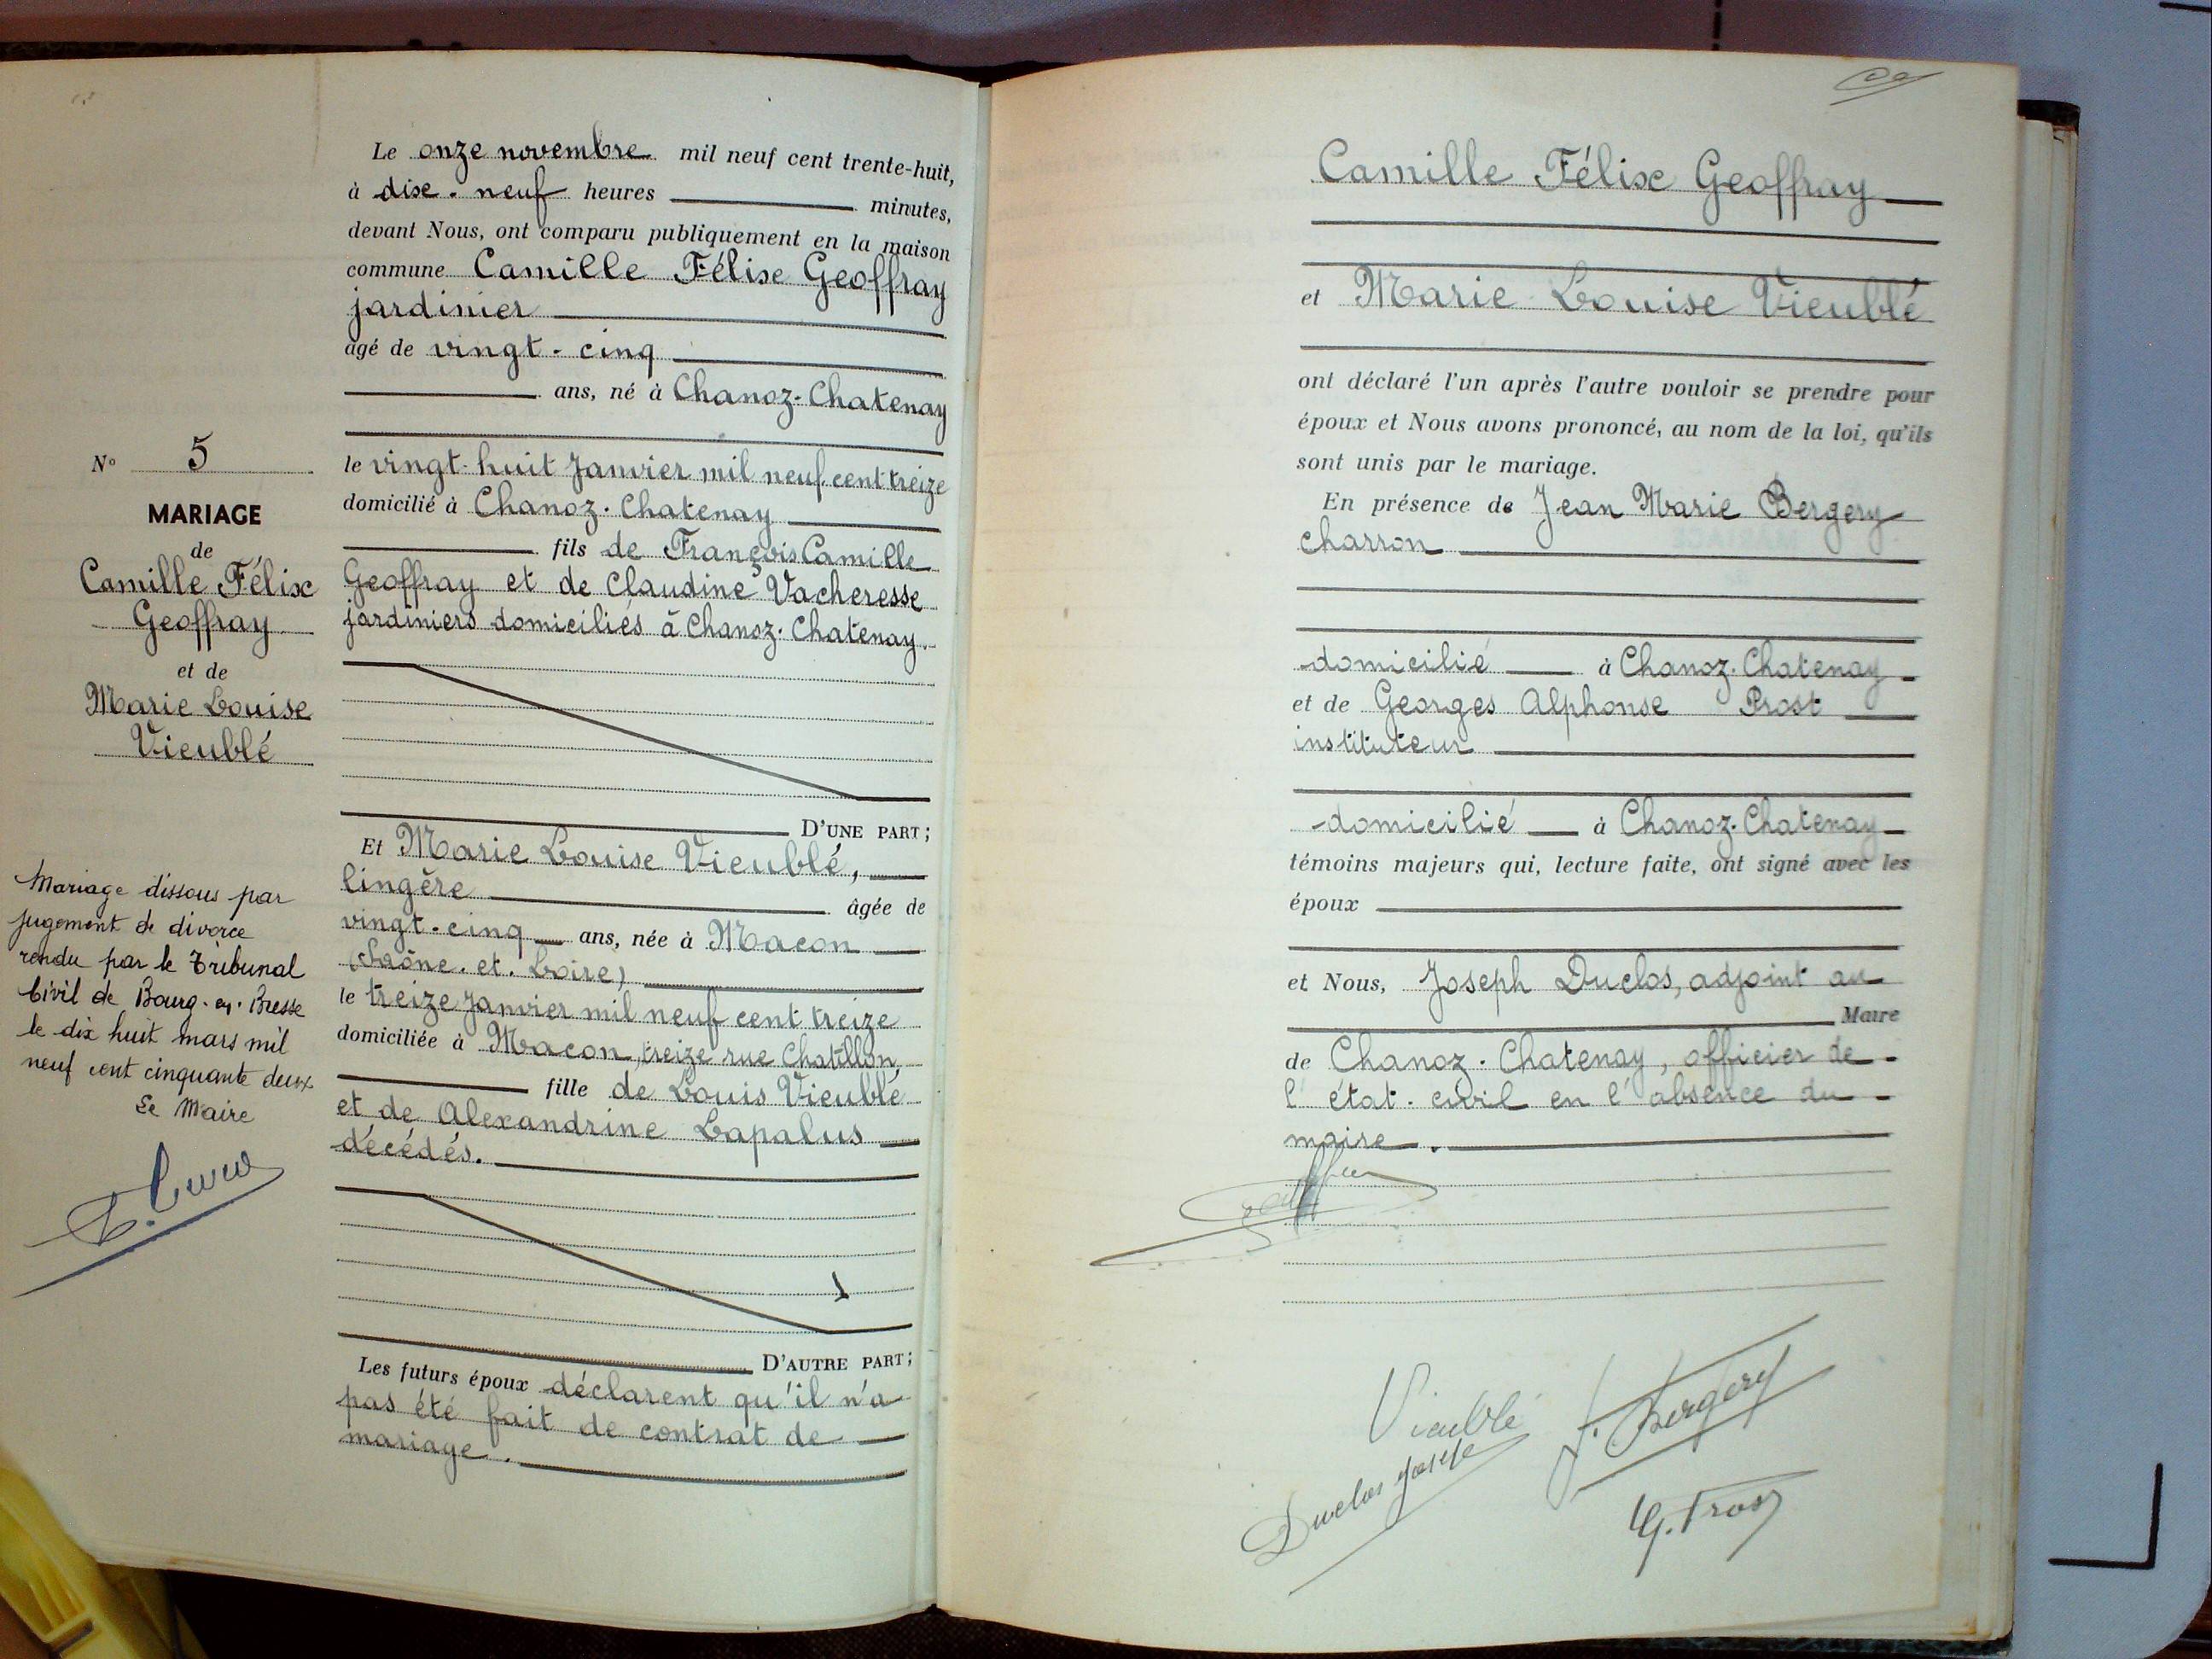 Le onze novembre mil neuf cent trente-huit,
à dix-neuf heures minutes,
devant Nous, ont comparu publiquement en la maison
commune Camille Félix Geoffray
jardinier
âgé de vingt-cinq
ans, né à Chanoz-Chatenay
le vingt-huit janvier mil neuf cent treize
domicilié à Chanoz-Chatenay
fils de François Camille
Geoffray et de Claudine Vacheresse
jardiniers domiciliés à Chanoz-Chatenay.
D'UNE PART;
Et Marie Louise Vieublé,
lingère âgée de
vingt-cinq ans, née à Macon
(Saône-et-Loire)
le treize janvier mil neuf cent treize
domiciliée à Macon, treize rue Chatillon,
fille de Louis Vieublé
et de Alexandrine Lapalus
décédés.
D'AUTRE PART;
Les futurs époux déclarent qu'il n'a
pas été fait de contrat de
mariage.
N° 5
MARIAGE
de
Camille Félix
Geoffray
et de
Marie Louise
Vieublé
Mariage dissous par
jugement de divorce
rendu par le Tribunal
Civil de Bourg-en-Bresse
le dix huit mars mil
neuf cent cinquante deux
Le Maire
Camille Félix Geoffray
et Marie Louise Vieublé
ont déclaré l'un après l'autre vouloir se prendre pour
époux et Nous avons prononcé, au nom de la loi, qu'ils
sont unis par le mariage.
En présence de Jean Marie Bergery
charron
domicilié à Chanoz-Chatenay
et de Georges Alphonse Prost
instituteur
domicilié à Chanoz-Chatenay
témoins majeurs qui, lecture faite, ont signé avec les
époux
et Nous, Joseph Duclos, adjoint au
Maire
de Chanoz-Chatenay, officier de
l'état-civil en l'absence du
maire.
Vieublé
J. Bergery
Duclos Joseph
G. Prost